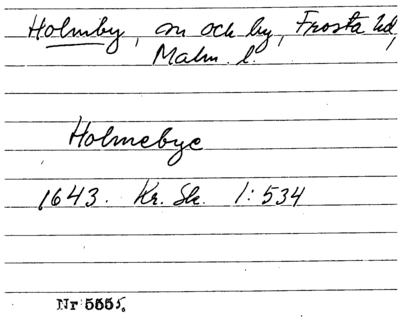 Holmby, sn och by, Frosta hd,
Malm. l.
Holmebye
1643. Kr. Sk. 1:534
Nr 5555.